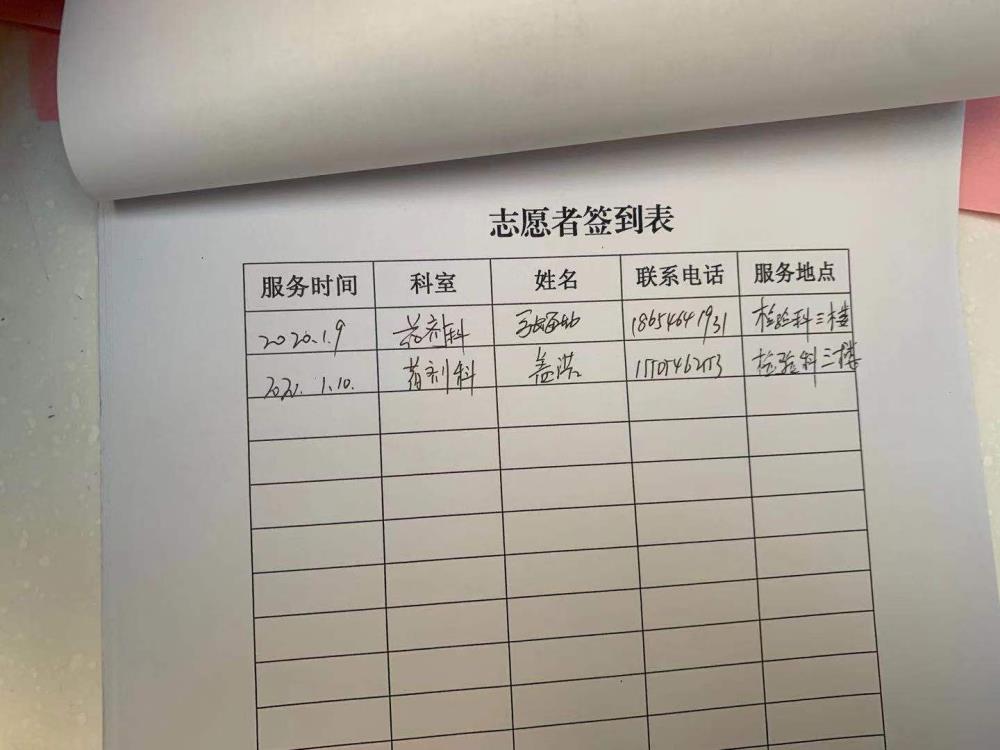 志愿者签到表
服务时间 科室 姓名 联系电话 服务地点
2020.1.9 药剂科 18654641931 检验科三楼
药剂科 盖洪 检验科三楼